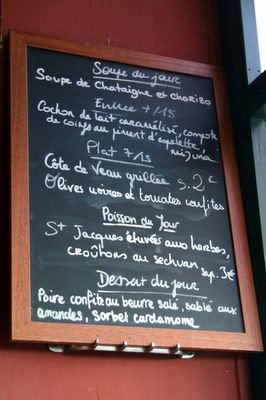 Soupe du jour
Soupe de Chataigne et Chorizo
Entrée +/15
Cochon de lait caramélisé, compote
de coings au piment d'espelette,
mizuna
Plat 7/15
Côte de Veau grillée S. 2€
Olives noires et tomates confites
Poisson du Jour
St Jacques étuvées aux herbes,
croûtons au sechuan Sup. 3€
Dessert du jour
Poire confite au beurre salé, sablé aux
amandes, sorbet cardamome